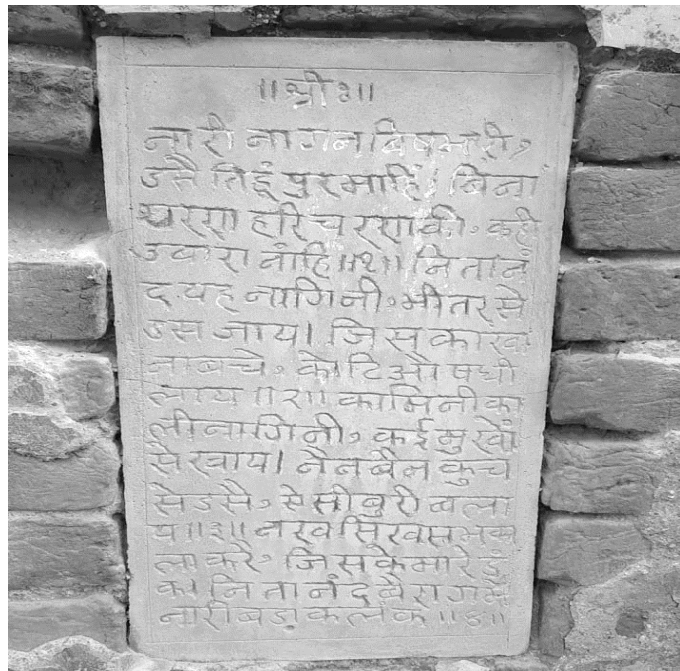 ॥श्रीः॥
नारी नागन बिषभरी,
डसै तिहूं पुरमाहिं। बिनां
शरण हरि चरणकी, कही
उबारा नांहि॥१॥ नितानं
द यह नागिनी, भीतर सै
डस जाय। जिसका खा
ना बचे, कोटि औषधी
लाय॥२॥ कामिनी का
ली नागिनी, कई मुखों
सै खाय। नैन बैन कुच
सै डसै, ऐसी बुरी बला
य॥३॥ नख सिख सब
ला करै, जिसके मारे
का। नितानंद बैराग मैं
नारी बड़ा कलंक॥४॥